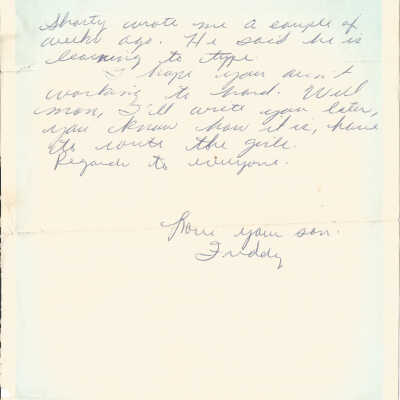 Shorty wrote me a couple of
weeks ago. He said he is
learning to type.
I hope you ain't
working to hard. Well
mom, I'll write you later,
you know how it is, have
to write the girls.
Regards to everyone.
Love your son.
Freddy